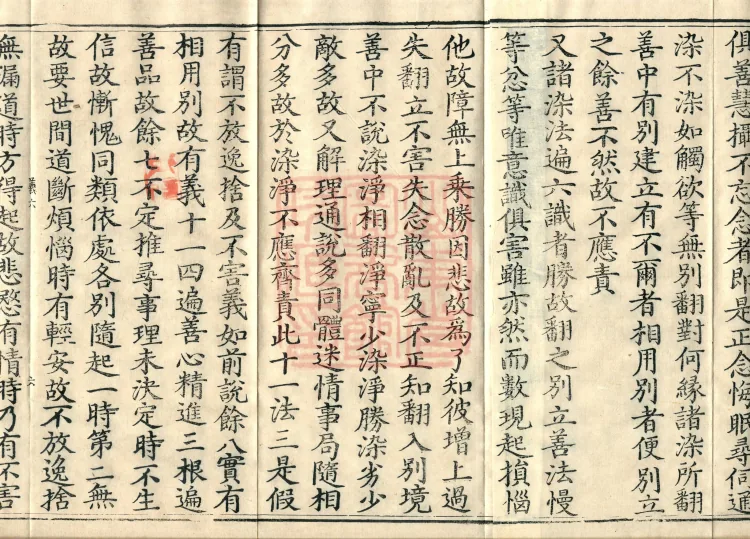 俱善慧攝不忘念者即是正念悔眠尋伺通
染不染如觸欲等無別翻對何緣諸染所翻
善中有別建立有不爾者相用別者便別立
之餘善不然故不應責
又諸染法遍六識者勝故翻之別立善法慢
等忿等唯意識俱害雖亦然而數現起損惱
他故障無上乘勝因悲故爲了知彼增上過
失翻立不害失念散亂及不正知翻入別境
善中不說染淨相翻淨寧少染淨勝染劣少
敵多故又解理通說多同體迷情事局隨相
分多故於染淨不應齊責此十一法三是假
有謂不放逸捨及不害義如前說餘八實有
相用別故有義十一四遍善心精進三根遍
善品故餘七不定推尋事理未決定時不生
信故慚愧同類依處各別隨起一時第二無
故要世間道斷煩惱時有輕安故不放逸捨
無漏道時方得起故悲愍有情時乃有不害